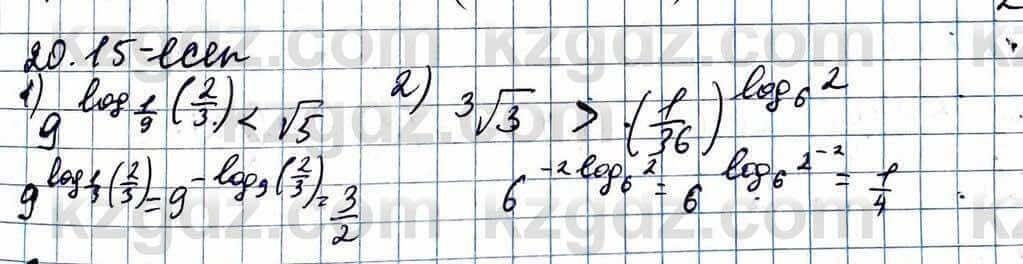 20.15-есеп
1) 9^{log_{1/9}(2/3)} < √5 2) ∛3 > (1/36)^{log_6 2}
9^{log_{1/3}(2/3)} = 9^{-log_9(2/3)} = 3/2 6^{-2log_6 2} = 6^{log_6 2^{-2}} = 1/4
kzgdz.com